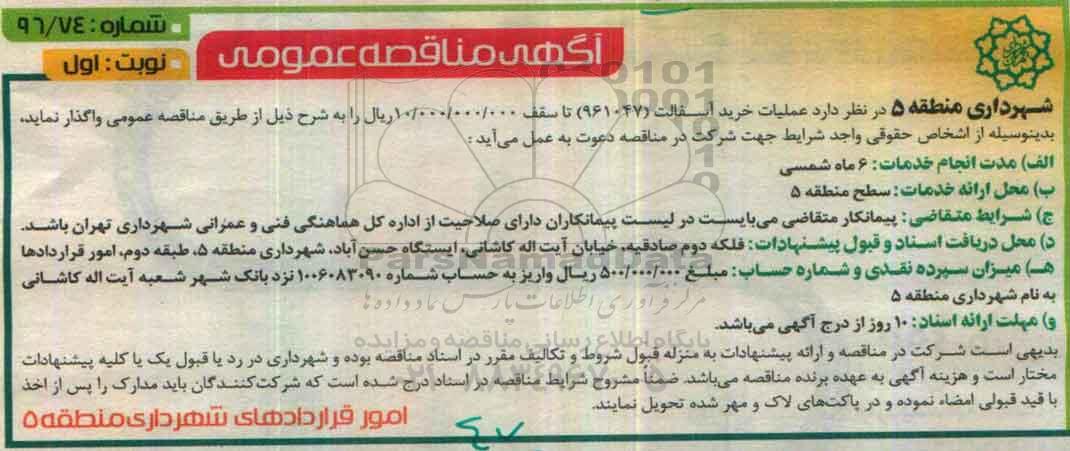 شماره: ۹۶/۷۴
آگهی مناقصه عمومی
نوبت: اول
شهرداری منطقه ۵ در نظر دارد عملیات خرید آسفالت (۹۶۱۰۴۷) تا سقف ۱۰/۰۰۰/۰۰۰/۰۰۰ریال را به شرح ذیل از طریق مناقصه عمومی واگذار نماید،
بدینوسیله از اشخاص حقوقی واجد شرایط جهت شرکت در مناقصه دعوت به عمل می‌آید:
الف) مدت انجام خدمات: ۶ ماه شمسی
ب) محل ارائه خدمات: سطح منطقه ۵
ج) شرایط متقاضی: پیمانکار متقاضی می‌بایست در لیست پیمانکاران دارای صلاحیت از اداره کل هماهنگی فنی و عمرانی شهرداری تهران باشد.
د) محل دریافت اسناد و قبول پیشنهادات: فلکه دوم صادقیه، خیابان آیت اله کاشانی، ایستگاه حسن‌آباد، شهرداری منطقه ۵، طبقه دوم، امور قراردادها
هـ) میزان سپرده نقدی و شماره حساب: مبلغ ۵۰۰/۰۰۰/۰۰۰ ریال واریز به حساب شماره ۱۰۰۶۰۸۳۰۹۰ نزد بانک شهر شعبه آیت اله کاشانی
به نام شهرداری منطقه ۵
و) مهلت ارائه اسناد: ۱۰ روز از درج آگهی می‌باشد.
بدیهی است شرکت در مناقصه و ارائه پیشنهادات به منزله قبول شروط و تکالیف مقرر در اسناد مناقصه بوده و شهرداری در رد یا قبول یک یا کلیه پیشنهادات
مختار است و هزینه آگهی به عهده برنده مناقصه می‌باشد. ضمناً مشروح شرایط مناقصه در اسناد درج شده است که شرکت‌کنندگان باید مدارک را پس از اخذ
با قید قبولی امضاء نموده و در پاکت‌های لاک و مهر شده تحویل نمایند.
امور قراردادهای شهرداری منطقه ۵
ParsNamadData
مرکز فرآوری اطلاعات پارس نماد داده ها
پایگاه اطلاع رسانی مناقصه و مزایده